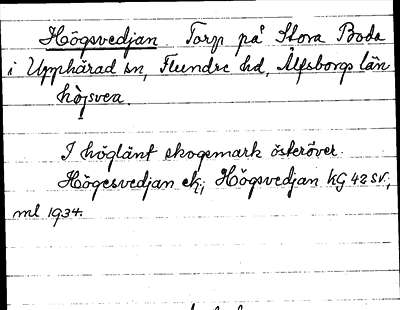 Högsvedjan Torp på Stora Boda
i Upphärad sn, Flundre hd, Älfsborgs län
höjsvea.
I höglänt skogsmark österöver.
Högesvedjan ek; Högsvedjan kG 42 SV;
ml 1934.